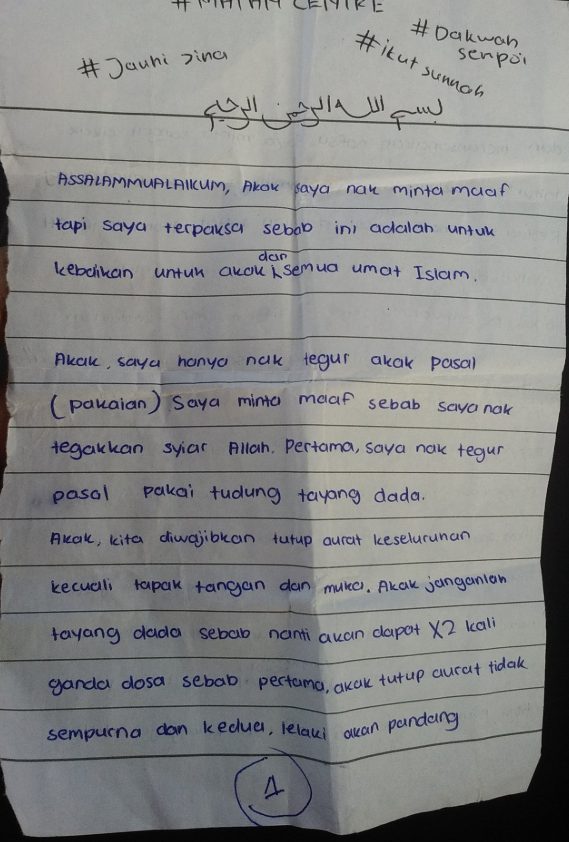 # MATAM CENTRE
# Jauhi zina
# ikut sunnah
# Dakwah
senpoi
بسم الله الرحمن الرحيم
ASSALAMMUALAIKUM, Akak saya nak minta maaf
tapi saya terpaksa sebab ini adalah untuk
kebaikan untuk akak dan semua umat Islam.
Akak, saya hanya nak tegur akak pasal
(pakaian) Saya minta maaf sebab saya nak
tegakkan syiar Allah. Pertama, saya nak tegur
pasal pakai tudung tayang dada.
Akak, kita diwajibkan tutup aurat keseluruhan
kecuali tapak tangan dan muka. Akak janganlah
tayang dada sebab nanti akan dapat X2 kali
ganda dosa sebab pertama, akak tutup aurat tidak
sempurna dan kedua, lelaki akan pandang
1